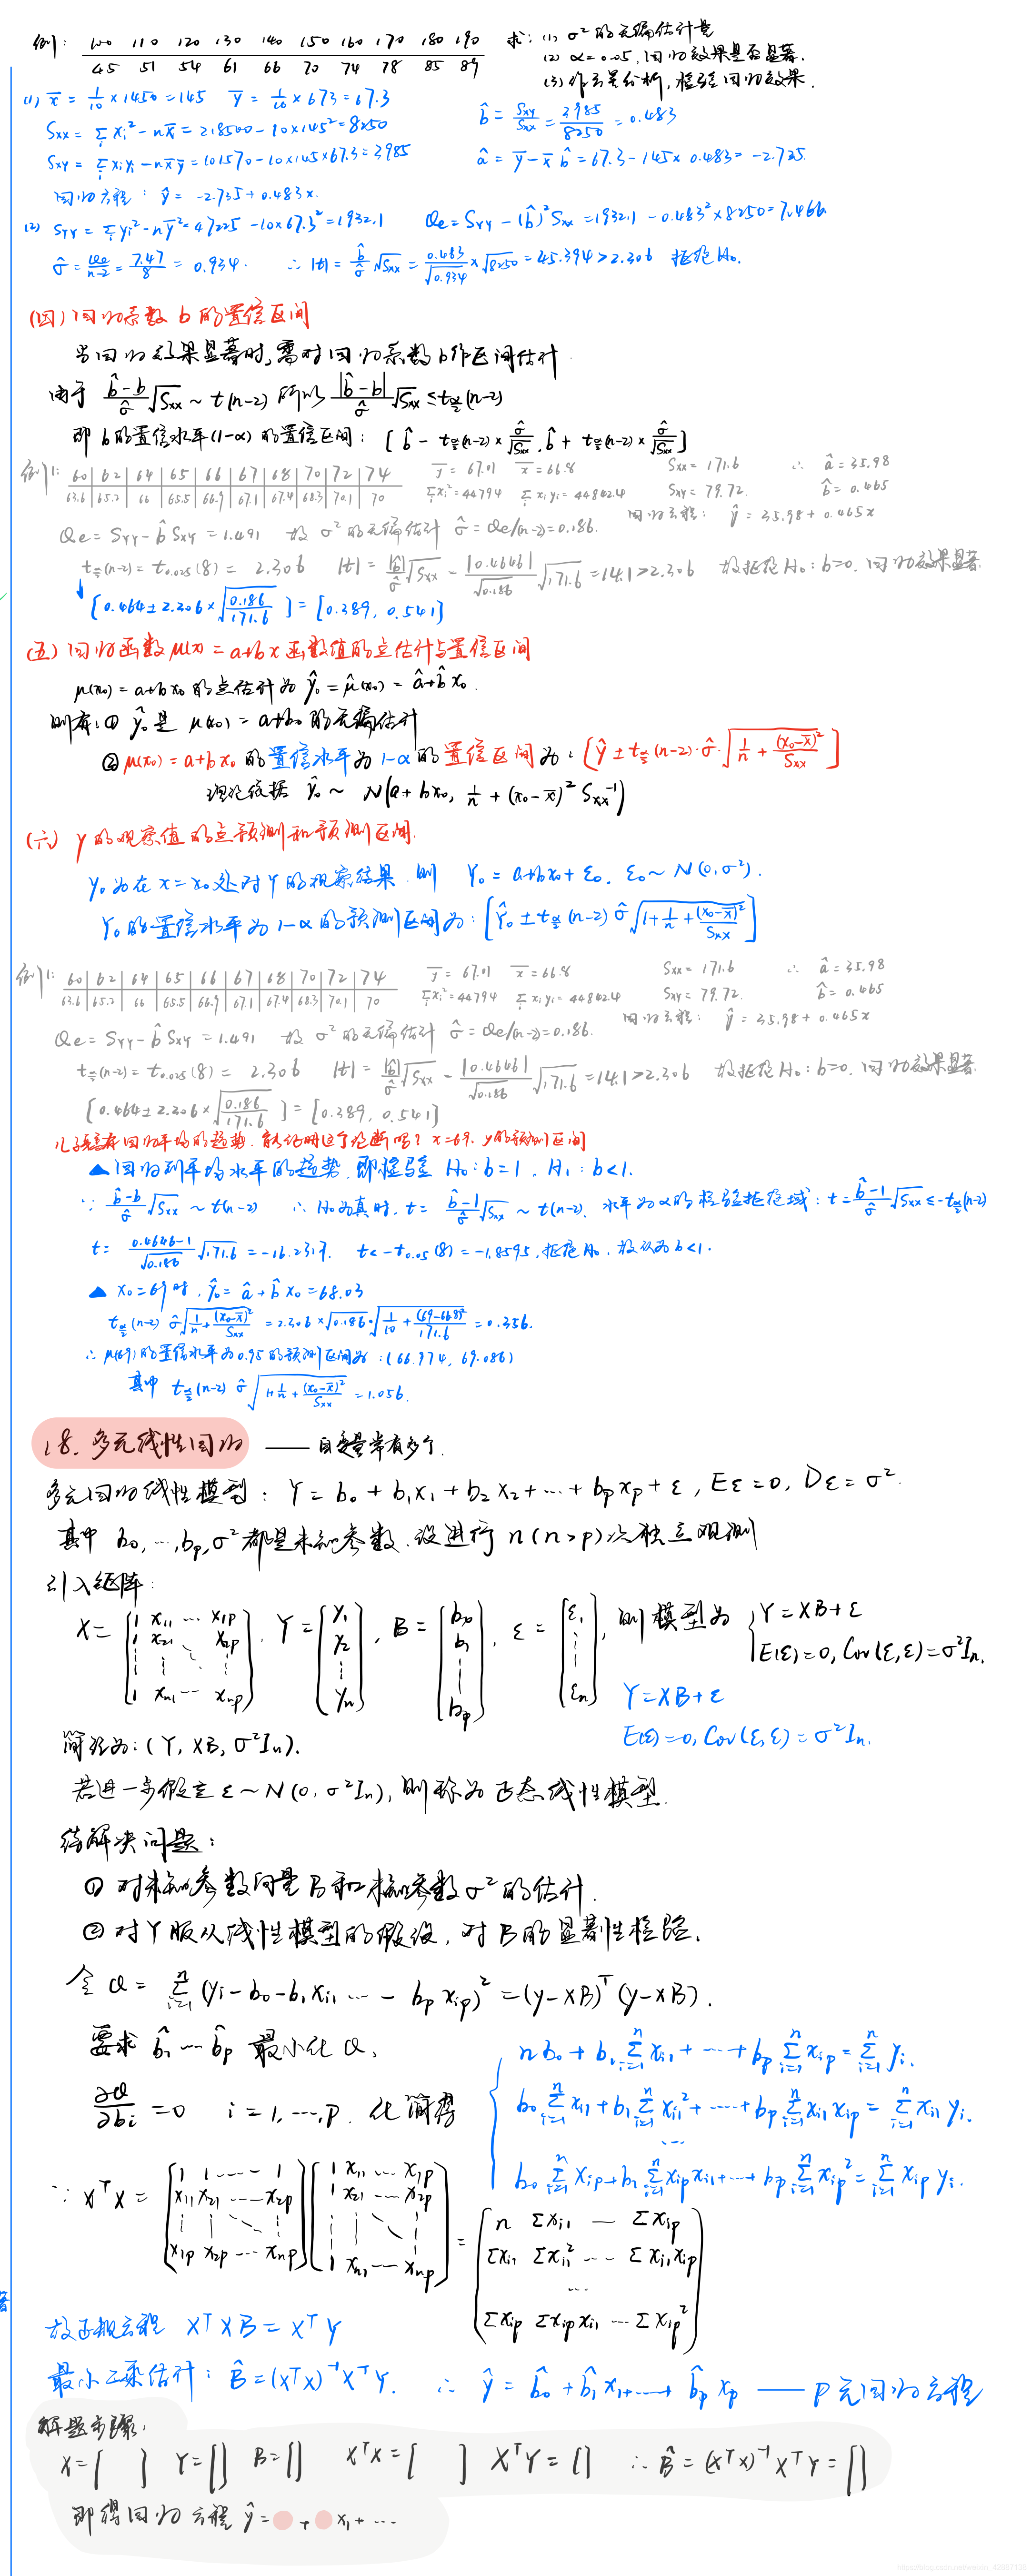 例: 100 110 120 130 140 150 160 170 180 190 求: (1) σ² 的无偏估计量
45 51 54 61 66 70 74 78 85 89 (2) α=0.05, 回归效果是否显著.
(3) 作方差分析, 检验回归效果.
(1) x̄ = 1/10 × 1450 = 145 ȳ = 1/10 × 673 = 67.3
b̂ = Sxy/Sxx = 3985/8250 = 0.483
Sxx = Σxi² - nx̄ = 218500 - 10×145² = 8250
Sxy = Σxiyi - nx̄ȳ = 101570 - 10×145×67.3 = 3985 â = ȳ - x̄b̂ = 67.3 - 145×0.483 = -2.735
回归方程: ŷ = -2.735 + 0.483x.
(2) SYY = Σyi² - nȳ² = 47225 - 10×67.3² = 1932.1 Qe = SYY - (b̂)²Sxx = 1932.1 - 0.483²×8250 = 7.466
σ̂ = Qe/(n-2) = 7.47/8 = 0.934. ∴ |t| = b̂/σ̂ √Sxx = 0.483/√0.934 × √8250 = 45.394 > 2.306 拒绝H₀.
(四) 回归系数 b 的置信区间
当回归效果显著时, 需对回归系数 b 作区间估计.
由于 (b̂-b)/σ̂ √Sxx ~ t(n-2) 所以 |b̂-b|/σ̂ √Sxx ≤ tα/2(n-2)
即 b 的置信水平(1-α) 的置信区间: [b̂ - tα/2(n-2) × σ̂/√Sxx, b̂ + tα/2(n-2) × σ̂/√Sxx]
例1: 60 62 64 65 66 67 68 70 72 74 ȳ = 67.01 x̄ = 66.8 Sxx = 171.6 ∴ â = 35.98
63.6 65.2 66 65.5 66.9 67.1 67.4 68.3 70.1 70 Σxi² = 44794 Σxiyi = 44842.4 Sxy = 79.72. b̂ = 0.465
回归方程: ŷ = 35.98 + 0.465x
Qe = SYY - b̂Sxy = 1.491 故 σ² 的无偏估计 σ̂ = Qe/(n-2) = 0.186.
tα/2(n-2) = t0.025(8) = 2.306 |t| = |b̂|/σ̂ √Sxx = |0.4646|/√0.186 √171.6 = 14.1 > 2.306 故拒绝H₀: b=0. 回归效果显著.
[0.464 ± 2.306 × √(0.186/171.6)] = [0.389, 0.541]
(五) 回归函数 μ(x) = a+bx 函数值的点估计与置信区间
μ(x₀) = a+bx₀ 的点估计为 ŷ₀ = μ̂(x₀) = â+b̂x₀.
则有: ① ŷ₀ 是 μ(x₀) = a+bx₀ 的无偏估计
② μ(x₀) = a+bx₀ 的置信水平为 1-α 的置信区间为: [ŷ ± tα/2(n-2)·σ̂·√(1/n + (x₀-x̄)²/Sxx)]
理论依据 ŷ₀ ~ N(a+bx₀, 1/n + (x₀-x̄)² Sxx⁻¹)
(六) Y 的观察值的点预测和预测区间.
Y₀ 为在 x=x₀ 处对 Y 的观察结果. 则 Y₀ = a+bx₀+ε₀, ε₀ ~ N(0, σ²).
Y₀ 的置信水平为 1-α 的预测区间为: [Ŷ₀ ± tα/2(n-2) σ̂ √(1+1/n+(x₀-x̄)²/Sxx)]
例1: 60 62 64 65 66 67 68 70 72 74 ȳ = 67.01 x̄ = 66.8 Sxx = 171.6 ∴ â = 35.98
63.6 65.2 66 65.5 66.9 67.1 67.4 68.3 70.1 70 Σxi² = 44794 Σxiyi = 44842.4 Sxy = 79.72. b̂ = 0.465
回归方程: ŷ = 35.98 + 0.465x
Qe = SYY - b̂Sxy = 1.491 故 σ² 的无偏估计 σ̂ = Qe/(n-2) = 0.186.
tα/2(n-2) = t0.025(8) = 2.306 |t| = |b̂|/σ̂ √Sxx = |0.4646|/√0.186 √171.6 = 14.1 > 2.306 故拒绝H₀: b=0. 回归效果显著.
[0.464 ± 2.306 × √(0.186/171.6)] = [0.389, 0.541]
儿子身高有回归平均的趋势. 能证明这个论断吗? x=69. y的预测区间
▲ 回归到平均水平的趋势. 即检验 H₀: b=1, H₁: b<1.
∵ (b̂-b)/σ̂ √Sxx ~ t(n-2) ∴ H₀为真时, t = (b̂-1)/σ̂ √Sxx ~ t(n-2). 水平为α的检验拒绝域: t = (b̂-1)/σ̂ √Sxx ≤ -tα/2(n-2)
t = (0.4646-1)/√0.186 √171.6 = -16.2317. t < -t0.05(8) = -1.8595, 拒绝H₀. 故认为 b<1.
▲ x₀=69时, ŷ₀ = â+b̂x₀ = 68.03
tα/2(n-2) σ̂√(1/n+(x₀-x̄)²/Sxx) = 2.306×√0.186·√(1/10+(69-66.8)²/171.6) = 0.356.
∴ μ(69) 的置信水平为0.95 的预测区间为: (66.974, 69.086)
其中 tα/2(n-2) σ̂ √(1+1/n+(x₀-x̄)²/Sxx) = 1.056.
18. 多元线性回归 —— 自变量常有多个.
多元回归线性模型: Y = b₀ + b₁x₁ + b₂x₂ + ⋯ + bpxp + ε, Eε=0, Dε=σ².
其中 b₀, ⋯, bp, σ² 都是未知参数. 设进行 n(n>p)次独立观测
引入矩阵:
X = [1 x₁₁ ⋯ x₁p; 1 x₂₁ ⋯ x₂p; ⋮; 1 xn₁ ⋯ xnp], Y = [y₁ y₂ ⋮ yn], B = [b₀ b₁ ⋮ bp], ε = [ε₁ ⋮ εn], 则模型为 { Y=XB+ε
E(ε)=0, Cov(ε,ε)=σ²In.
Y=XB+ε
E(ε)=0, Cov(ε,ε)=σ²In.
简记为: (Y, XB, σ²In).
若进一步假定 ε~N(0, σ²In), 则称为正态线性模型.
待解决问题:
① 对未知参数向量B和未知参数σ²的估计.
② 对Y服从线性模型的假设, 对B的显著性检验.
令 Q = Σ(yi - b₀ - b₁xi₁ ⋯ - bpxip)² = (y-XB)ᵀ(y-XB).
要求 b̂₁⋯b̂p 最小化Q,
∂Q/∂bi = 0 i=1,⋯,p. 化简得 { nb₀ + b₁Σxi₁ + ⋯ + bpΣxip = Σyi.
b₀Σxi₁ + b₁Σxi₁² + ⋯ + bpΣxi₁xip = Σxi₁yi.
⋯
b₀Σxip + b₁Σxipxi₁ + ⋯ + bpΣxip² = Σxipyi.
∵ XᵀX = [1 1 ⋯ 1; x₁₁ x₂₁ ⋯ x₂p; ⋮; x₁p x₂p ⋯ xnp][1 x₁₁ ⋯ x₁p; 1 x₂₁ ⋯ x₂p; ⋮; 1 xn₁ ⋯ xnp] = [n Σxi₁ ⋯ Σxip; Σxi₁ Σxi₁² ⋯ Σxi₁xip; ⋯; Σxip Σxipxi₁ ⋯ Σxip²]
故正规方程 XᵀXB = XᵀY
最小二乘估计: B̂ = (XᵀX)⁻¹XᵀY. ∴ ŷ = b̂₀ + b̂₁x₁ + ⋯ b̂pxp —— p元回归方程
解题步骤:
X=[ ] Y=[] B=[] XᵀX=[ ] XᵀY=[] ∴ B̂=(XᵀX)⁻¹XᵀY=[]
即得回归方程 ŷ= + x₁+⋯
著